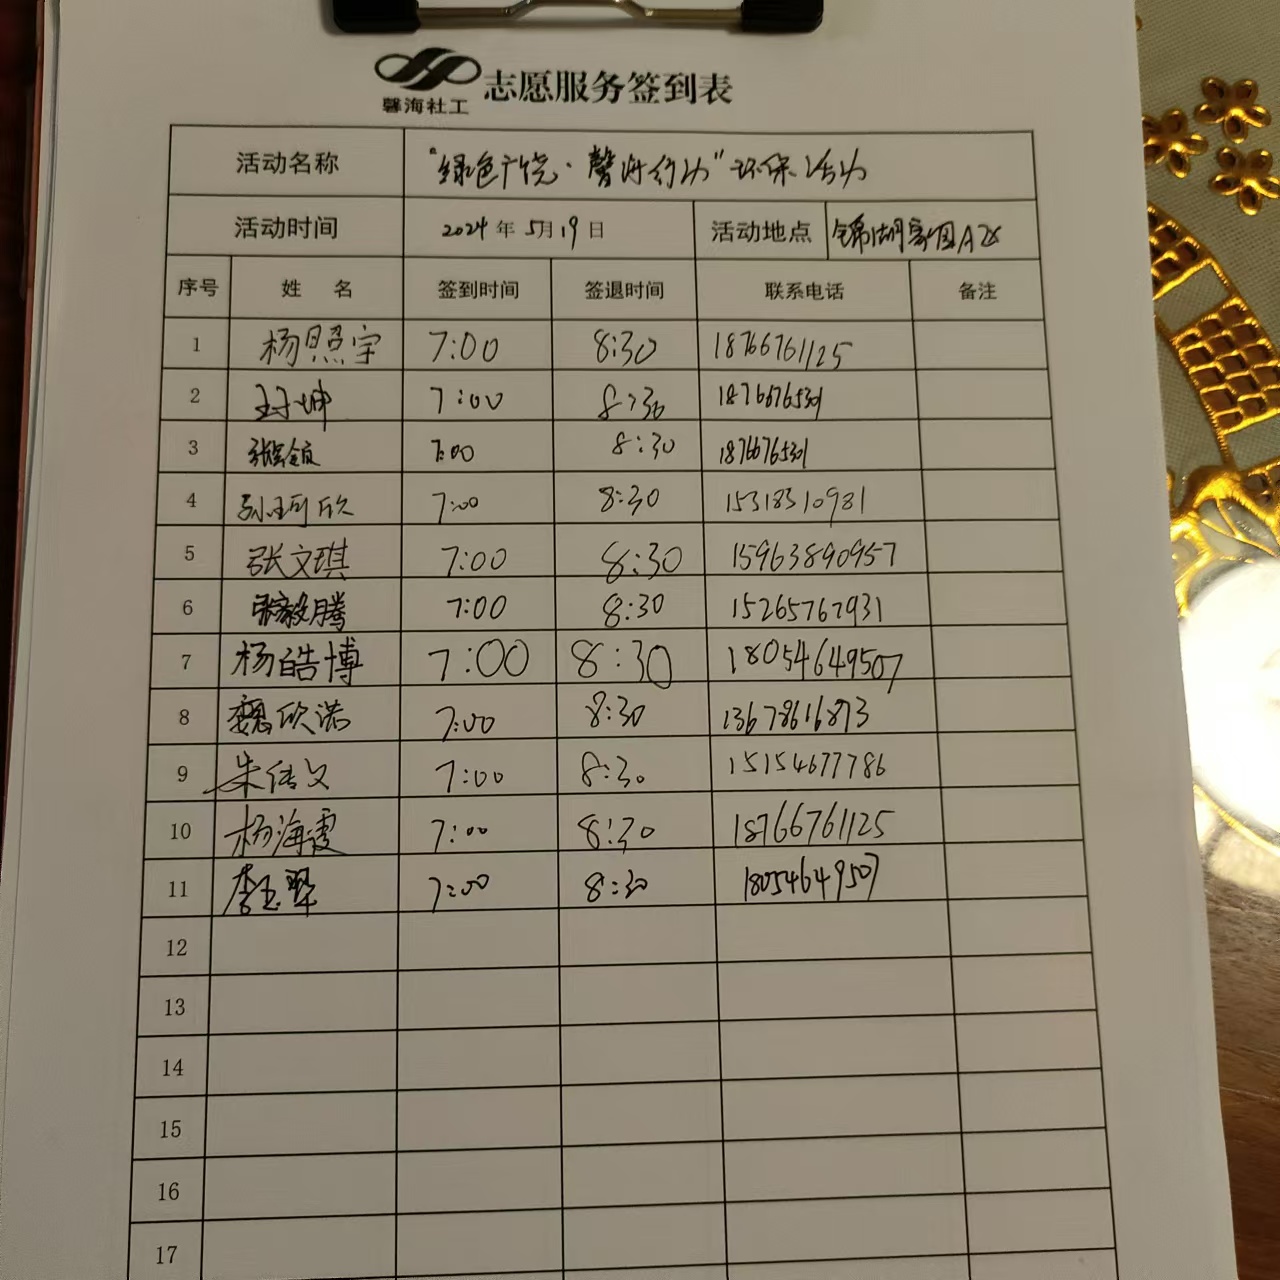 馨海社工 志愿服务签到表
活动名称 "绿色广饶·馨海行动"环保活动
活动时间 2024年5月19日 活动地点 锦湖家园A区
序号 姓 名 签到时间 签退时间 联系电话 备注
1 杨照宇 7:00 8:30 18766761125
2 封坤 7:00 8:30 18766765301
3 7:00 8:30 18766765301
4 孙珂欣 7:00 8:30 15318310981
5 张文琪 7:00 8:30 15963890957
6 张毅腾 7:00 8:30 15265767931
7 杨皓博 7:00 8:30 18054649507
8 魏欣诺 7:00 8:30 13678616873
9 朱传文 7:00 8:30 15154677786
10 杨海霞 7:00 8:30 18766761125
11 李玉翠 7:00 8:30 18054649507
12
13
14
15
16
17